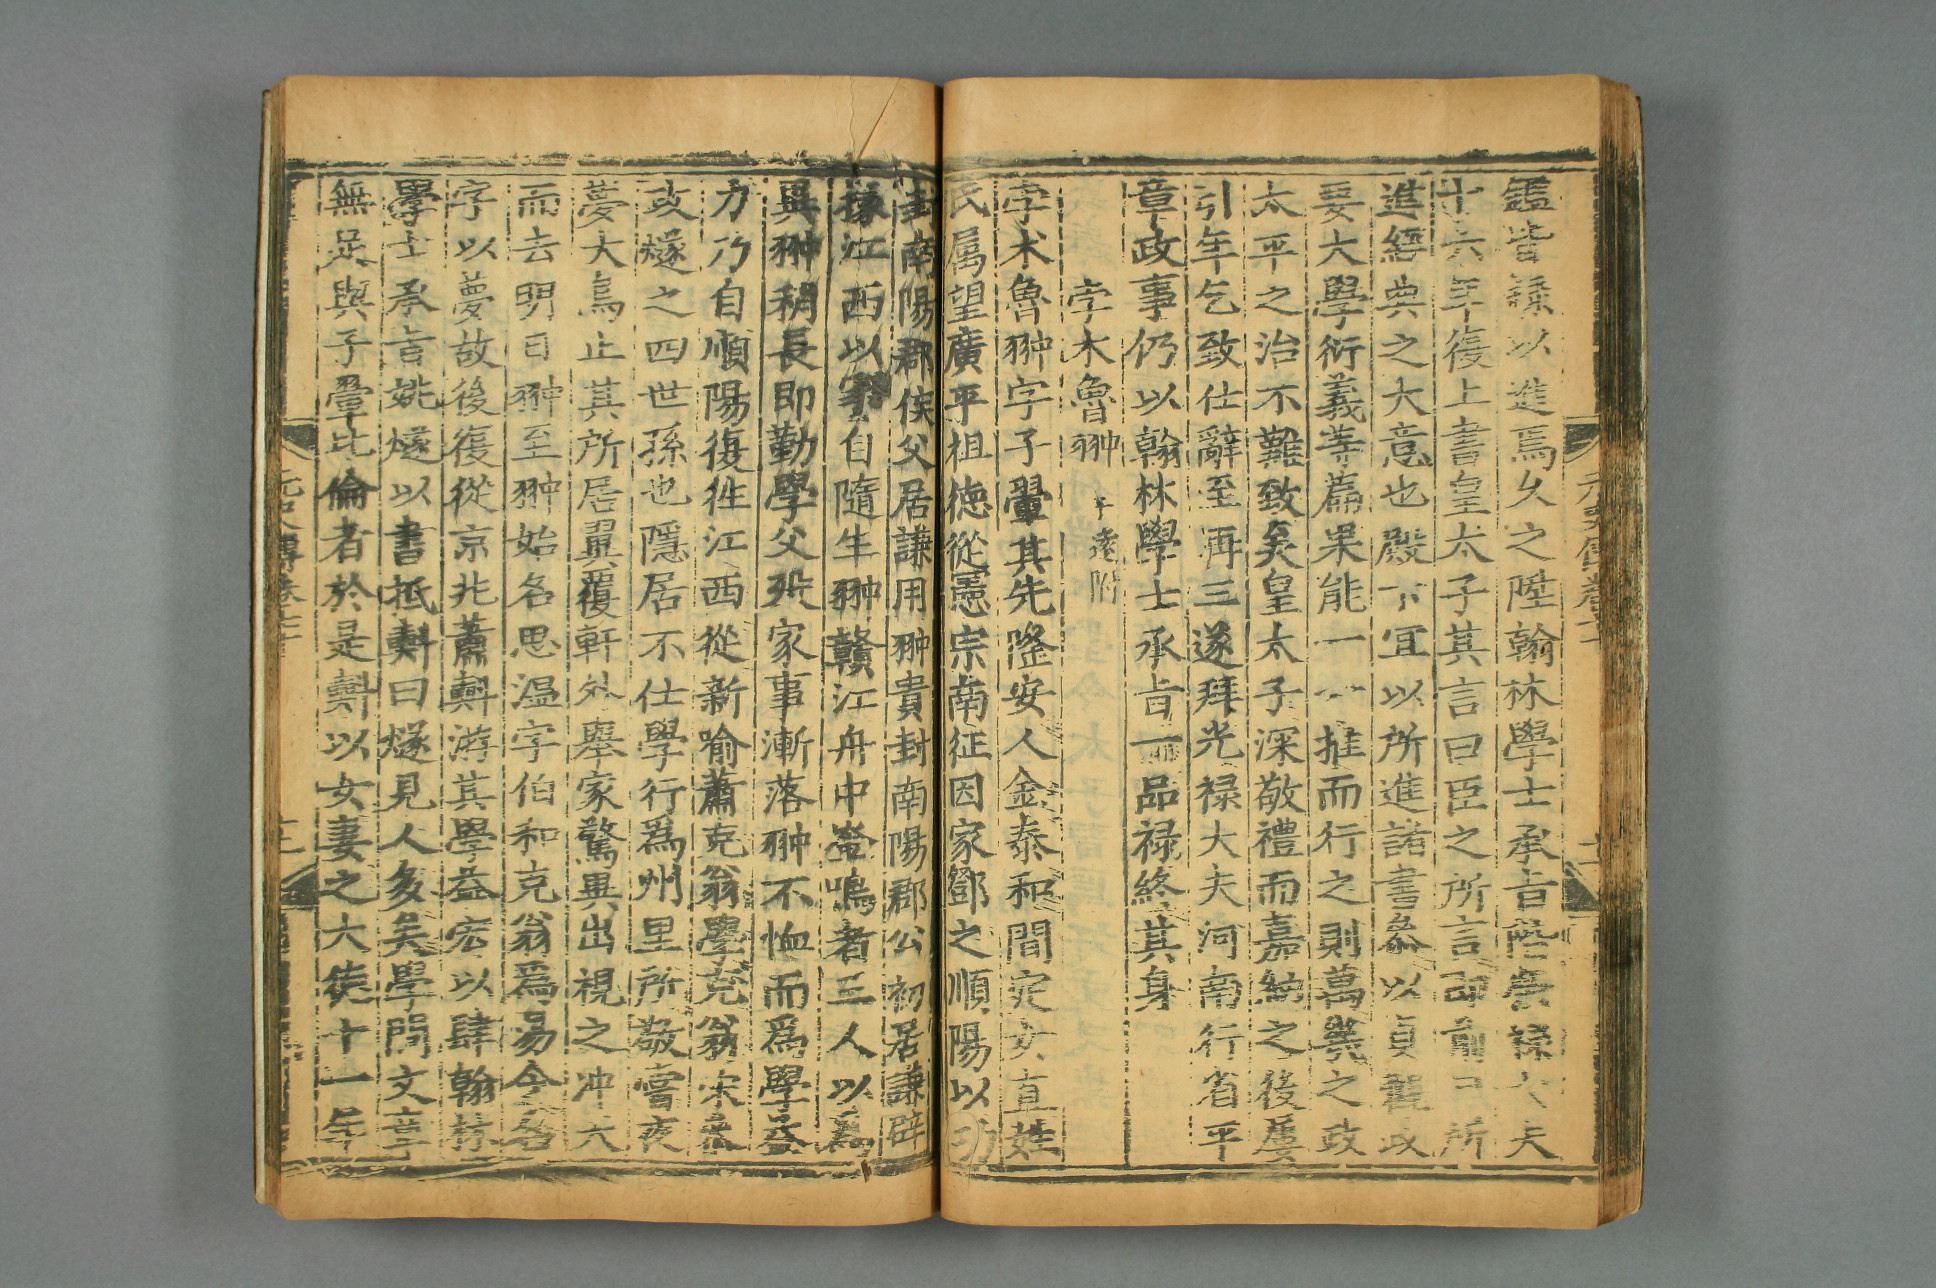 鑑皆錄以進焉久之陞翰林學士承旨階榮祿大夫
十六年復上書皇太子其言曰臣之所言即前日所
進經典之大意也殿下宜以所進諸書參以貞觀政
要大學衍義等篇果能一一推而行之則萬幾之政
太平之治不難致矣皇太子深敬禮而嘉納之後屢
引年乞致仕辭至再三遂拜光禄大夫河南行省平
章政事仍以翰林學士承旨一品禄終其身
孛术魯翀 子遠附
孛术魯翀字子翬其先隆安人金泰和間定女直姓
氏属望廣平祖德從憲宗南征因家鄧之順陽以功
封南陽郡侯父居謙用翀貴封南陽郡公初居謙辟
掾江西以家自隨生翀贛江舟中釜鳴者三人以爲
異翀稍長即勤學父殁家事漸落翀不恤而爲學益
力乃自順陽復徃江西從新喻蕭克翁學克翁宋參
政燧之四世孫也隱居不仕學行爲州里所敬嘗夜
夢大鳥止其所居翼覆軒外舉家驚異出視之冲天
而去明日翀至翀始名思温字伯和克翁爲易今名
字以夢故後復從京兆蕭㪺游其學益宏以肆翰林
學士承旨姚燧以書抵㪺曰燧見人多矣學問文章
無足與子翬比倫者於是㪺以女妻之大徳十一年
元史傳卷七十